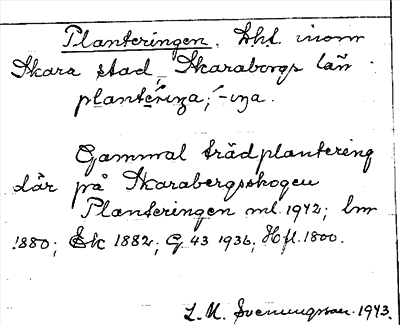 Planteringen. Lht. inom
Skara stad, Skaraborgs län.
plantériŋa, -iŋa.
Gammal trädplantering
där på Skarabergsskogen
Planteringen ml. 1942; lm
1880; Ek 1882; G 43 1936; Hfl. 1800.
L. M. Svenungsson. 1943.